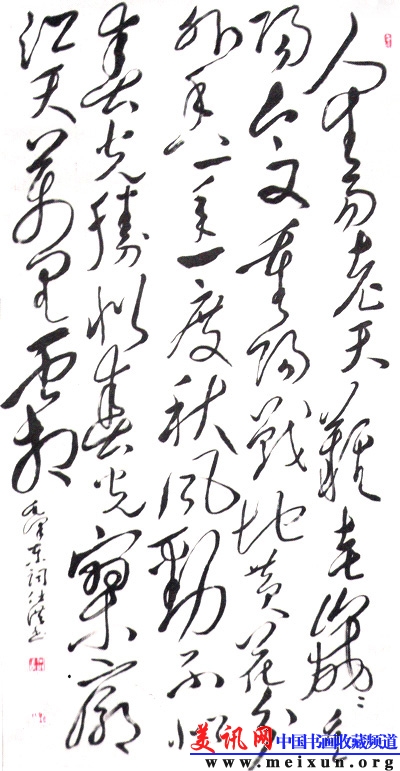 人生易老天難老歲々重
陽今又重陽戰地黄花分
外香一年一度秋風勁不似
春光勝似春光寥廓
江天萬里霜
毛澤東詞
美讯网 中国书画收藏频道
www.meixun.org